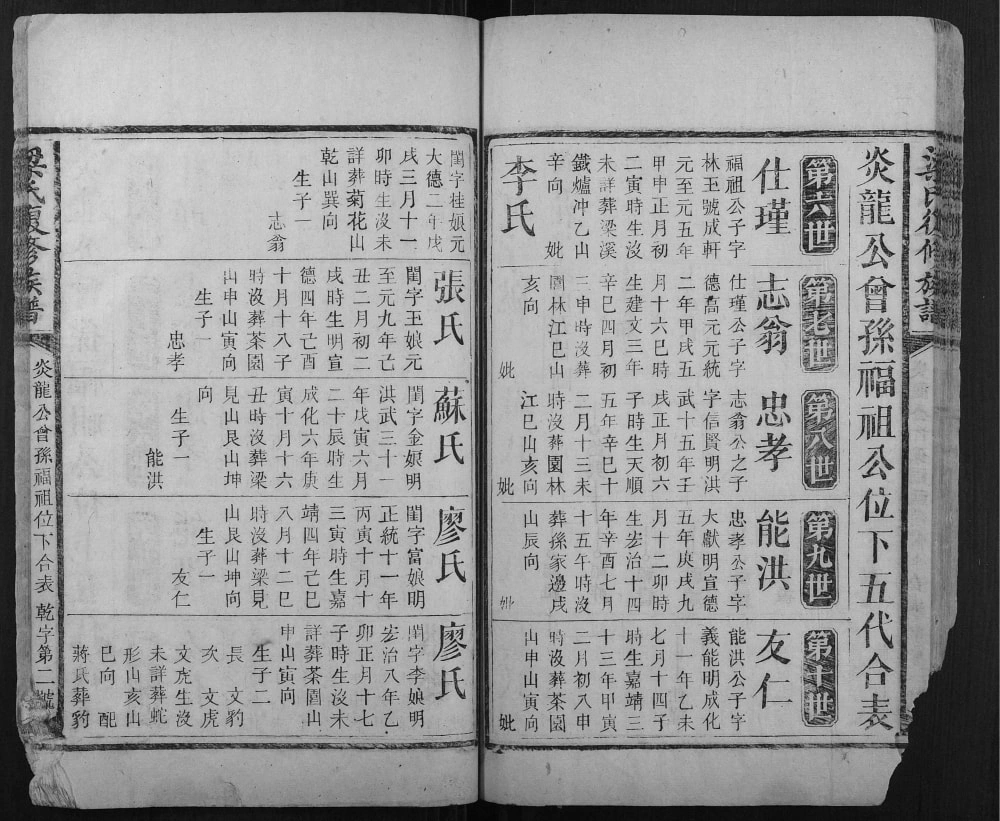 梁氏復修族譜
炎龍公曾孫福祖公位下五代合表
第六世
仕瑾
福祖公子字
林玉號成軒
元至元五年
甲申正月初
二寅時生沒
未詳葬梁溪
鐵爐冲乙山
辛向 妣
李氏
第七世
志翁
仕瑾公子字
德高元元統
二年甲戌五
月十六巳時
生建文三年
辛巳四月初
三申時沒葬
園林江巳山
亥向 妣
第八世
忠孝
志翁公之子
字信賢明洪
武十五年壬
戌正月初六
子時生天順
五年辛巳十
二月十三未
時沒葬園林
江巳山亥向 妣
第九世
能洪
忠孝公子字
大獻明宣德
五年庚戌九
月十二卯時
生宏治十四
年辛酉七月
十五午時沒
葬孫家邊戌
山辰向 妣
第十世
友仁
能洪公子字
義能明成化
十一年乙未
七月十四子
時生嘉靖三
十三年甲寅
二月初八申
時沒葬茶園
山申山寅向 妣
閨字桂娘元
大德二年戊
戌三月十一
卯時生沒未
詳葬菊花山
乾山巽向
生子一
志翁
張氏
閨字玉娘元
至元九年己
丑二月初二
戌時生明宣
德四年己酉
十月十八子
時沒葬茶園
山申山寅向
生子一
忠孝
蘇氏
閨字金娘明
洪武三十一
年戊寅六月
二十辰時生
成化六年庚
寅十月十六
丑時沒葬梁
見山艮山坤
向
生子一
能洪
廖氏
閨字富娘明
正統十一年
丙寅十月十
三寅時生嘉
靖四年己巳
八月十二巳
時沒葬梁見
山艮山坤向
生子一
友仁
廖氏
閨字李娘明
宏治八年乙
卯正月十七
子時生沒未
詳葬茶園山
申山寅向
生子二
長 文豹
次 文虎
文虎生沒
未詳葬蛇
形山亥山
巳向 配
蔣氏葬豹
梁氏復修族譜
炎龍公曾孫福祖位下合表
乾字第二號